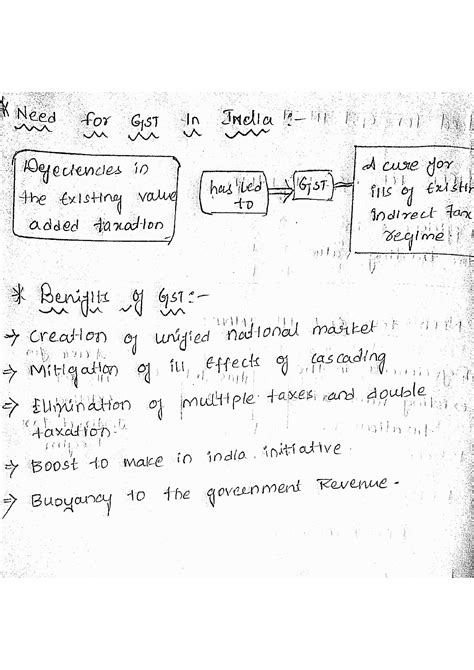 * Need for GST In India :-
Defeciencies in
the Existing value
added taxation
has led
to
GST
A cure for
ills of Existin
indirect tax
regime
* Benifits of GST:-
⇒ Creation of unified national market
⇒ Mitigation of ill Effects of cascading
⇒ Elimination of multiple taxes and double
taxation.
⇒ Boost to make in india initiative.
⇒ Buoyancy to the government Revenue.